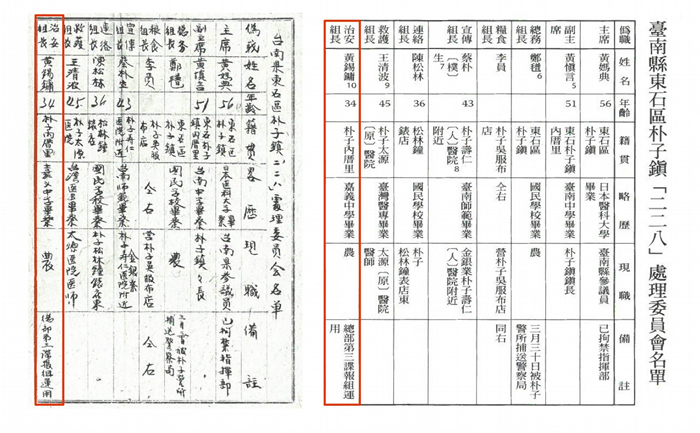 台南県東石區朴子鎮二二八處理委員会名单
偽戝 姓名 年齡 籍貫 畧歷 現職 備註
主席 黃媽典 56 東石區朴子鎮 日本医科大学畢業 台南県參議員 已拘禁指揮部
副主席 黃慎言 51 東石朴子鎮內厝里 台南中学畢業 朴子鎮鎮長
總務 鄭穗 東石區朴子鎮 國民学校畢業 農 三月三十日被朴子警所捕送警察局
糧食組長 李員 朴子吳服布店 仝右 营朴子吳服布店 仝右
宣傳組長 蔡朴生 43 朴子寿仁医院附近 台南師範畢業 金銀業朴子寿仁医院附近
連絡組長 陳松林 36 松林鐘錶店 國民学校畢業 朴子松林鐘錶店東
救護組長 王清波 45 朴子太源医院 台灣医專畢業 太源医院医师
治安組長 黃錫鏞 34 朴子內厝里 嘉义中学畢業 農 總部第三諜報組運用
臺南縣東石區朴子鎮「二二八」處理委員會名單
僞職 姓名 年齡 籍貫 略歷 現職 備註
主席 黃媽典 56 東石區朴子鎮 日本醫科大學畢業 臺南縣參議員 已拘禁指揮部
副主席 黃愼言5 51 東石朴子鎮內厝里 臺南中學畢業 朴子鎮鎮長
總務 鄭穗6 東石區朴子鎮 國民學校畢業 農 三月三十日被朴子警所捕送警察局
糧食組長 李員 朴子吳服布店 仝右 營朴子吳服布店 同右
宣傳組長 蔡朴〔樸〕生7 43 朴子壽仁〔人〕醫院8附近 臺南師範畢業 金銀業朴子壽仁〔人〕醫院附近
連絡組長 陳松林 36 松林鐘錶店 國民學校畢業 朴子松林鐘錶店東
救護組長 王清波9 45 朴子太源〔原〕醫院 臺灣醫專畢業 太源〔原〕醫院醫師
治安組長 黃錫鏞10 34 朴子內厝里 嘉義中學畢業 農 總部第三諜報組運用